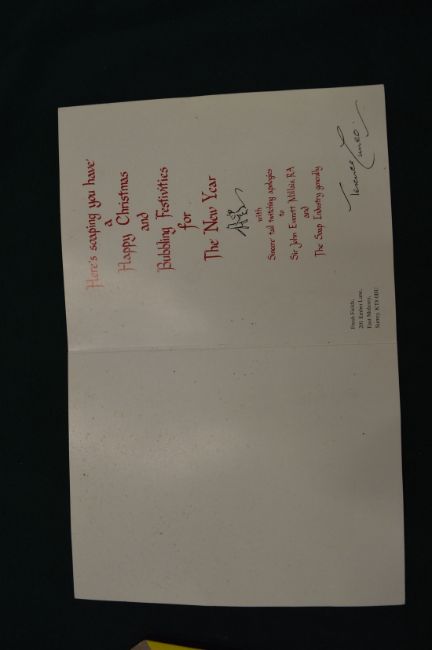 'Here's soaping you have'
a
Happy Christmas
and
Bubbling Festivities
for
The New Year
with
Sincere tail twitching apologies
to
Sir John Everett Millais, RA
and
The Soap Industry generally
Terence Cuneo.
201 Ember Lane,
East Molesey,
Surrey, KT8